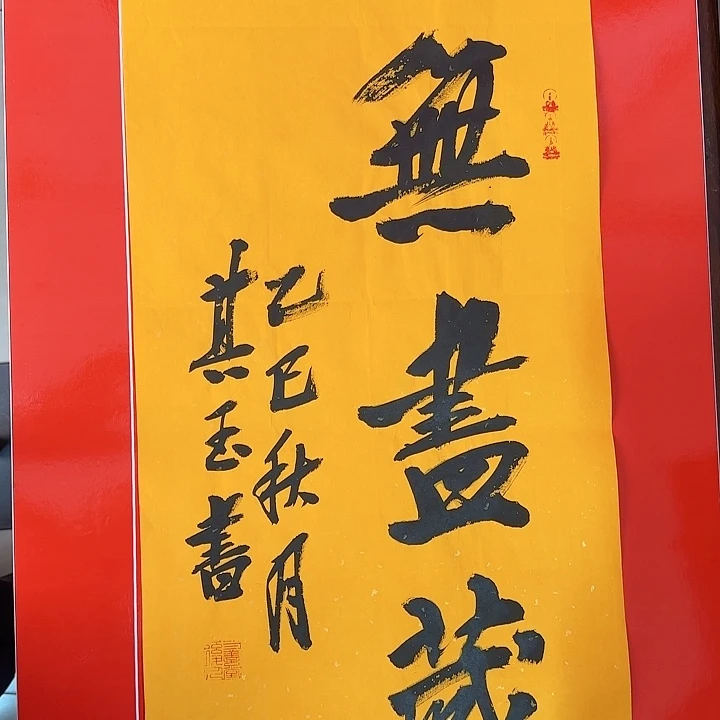 無盡藏
乙巳秋月
其玉書